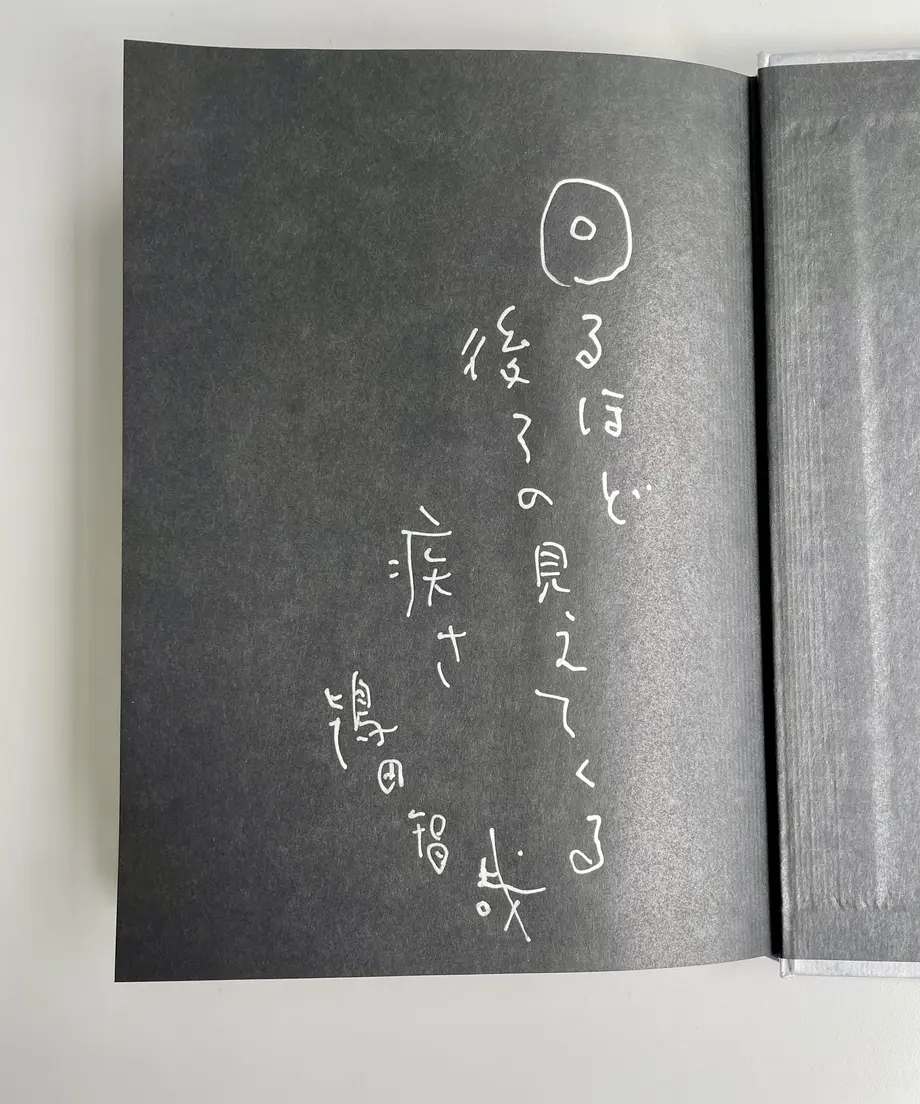 回るほど
後ろの見えてくる
疾さ
鴇田智哉